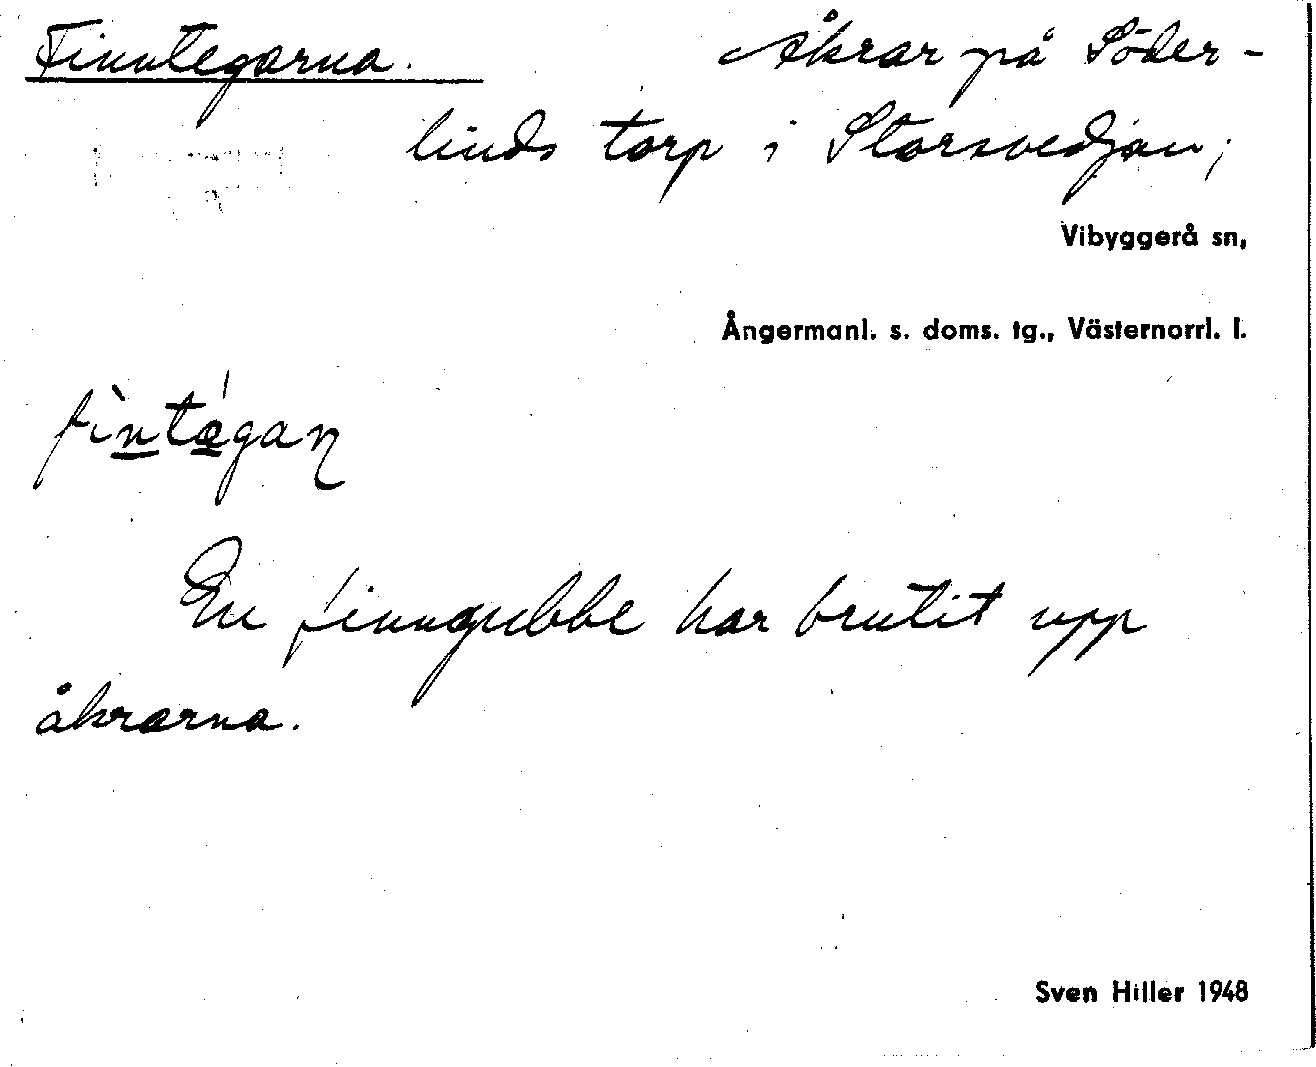 Finntegarna. Åkrar på Söder-
linds torp i Storsvedjan;
Vibyggerå sn,
Ångermanl. s. doms. tg., Västernorrl. l.
fìntǽgaꞃ
En finngubbe har brutit upp
åkrarna.
Sven Hiller 1948